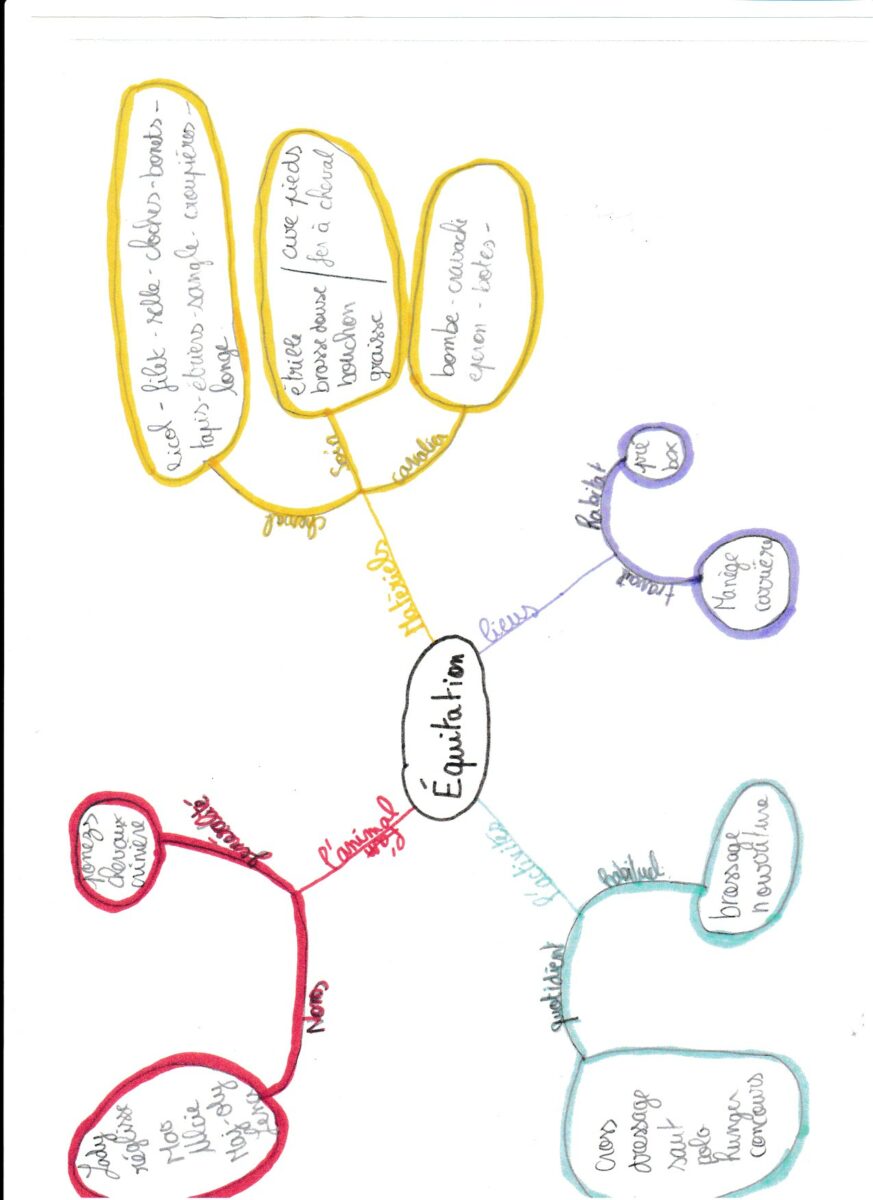 Équitation
Matériels
cheval
licol - filet - selle - cloches - bonets -
tapis - étriers - sangle - croupières -
longe
soin
étrille / cure pieds
brosse douse / fer à cheval
bouchon
graisse
cavalier
bombe - cravache
eperon - botes -
lieus
habitat
pré
box
travail
Manège
carrière
l'activités
habituel
brossage
nourriture
quotidient
cross
dressage
saut
polo
hunger
concours
l'animal
généralité
poneys
chevaux
crinière
Noms
Lady
réglisse
Moo